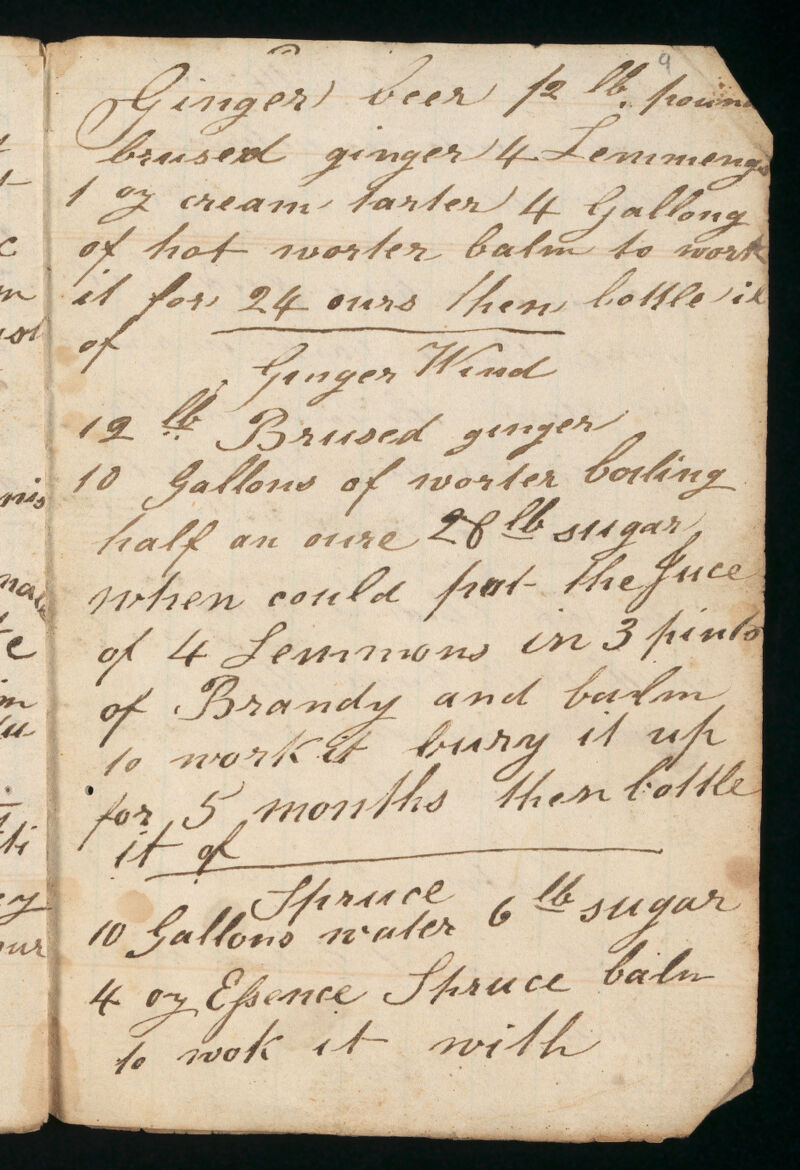 9
Ginger beer 12 lb. poun
brused ginger 4 Lemmeng
1 oz cream tarter 4 Gallong
of hot worter balm to work
it for 24 ours then bottle it
of
Ginger Wind
12 lb Brused ginger
10 Gallons of worter boiling
half an oure 28 lb sugar
when could put the Juce
of 4 Lemmons in 3 pints
of Brandy and balm
to work it bury it up
for 5 months then bottle
it of
Spruce
10 Gallons water 6 lb sugar
4 oz Essence Spruce balm
to wok it with